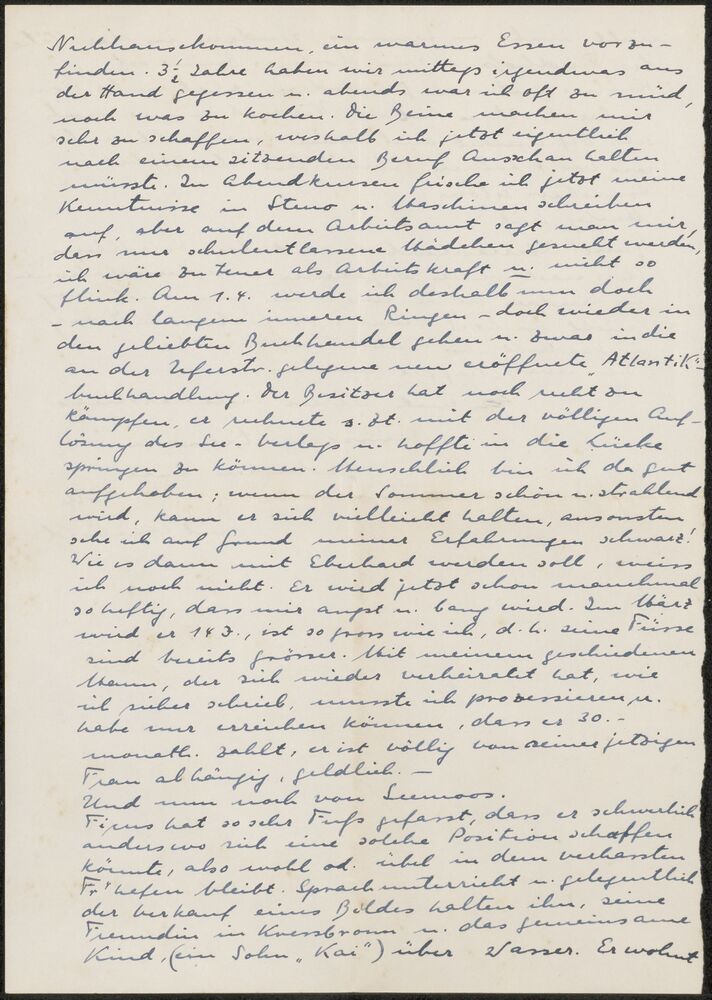 Nachhausekommen, ein warmes Essen vorzu-
finden. 3½ Jahre haben wir mittags irgendwas aus
der Hand gegessen u. abends war ich oft zu müd,
noch was zu kochen. Die Beine machen mir
sehr zu schaffen, weshalb ich jetzt eigentlich
nach einem sitzenden Beruf Ausschau halten
müsste. In Abendkursen frische ich jetzt meine
Kenntnisse in Steno u. Maschinenschreiben
auf, aber auf dem Arbeitsamt sagt man mir,
dass nur schulentlassene Mädchen gesucht werden,
ich wäre zu teuer als Arbeitskraft u. nicht so
flink. Am 1.4. werde ich deshalb nun doch
- nach langem inneren Ringen - doch wieder in
den geliebten Buchhandel gehen u. zwar in die
an der Uferstr. gelegene neu eröffnete „Atlantik"-
buchhandlung. Der Besitzer hat noch recht zu
kämpfen, er rechnete z. Zt. mit der völligen Auf-
lösung des See-Verlags u. hoffte in die Lücke
springen zu können. Menschlich bin ich da gut
aufgehoben; wenn der Sommer schön u. strahlend
wird, kann er sich vielleicht halten, ansonsten
sehe ich auf Grund meiner Erfahrungen schwarz!
Wie es dann mit Eberhard werden soll, weiss
ich noch nicht. Er wird jetzt schon manchmal
so heftig, dass mir angst u. bang wird. Im März
wird er 14 J., ist so gross wie ich, d. h. seine Füsse
sind bereits grösser. Mit meinem geschiedenen
Mann, der sich wieder verheiratet hat, wie
ich früher schrieb, musste ich prozessieren u.
habe nur erreichen können, dass er 30.-
monatl. zahlt, er ist völlig von seiner jetzigen
Frau abhängig, geldlich. -
Und nun noch von Seemoos.
hat so sehr Fuß gefasst, dass er schwerlich
anderswo sich eine solche Position schaffen
könnte, also wohl od. übel in dem verhassten
Fr'hafen bleibt. Sprachunterricht u. gelegentlich
der Verkauf eines Bildes halten ihn, seine
Freundin in Kressbronn u. das gemeinsame
Kind, (ein Sohn „Kai") über Wasser. Er wohnt